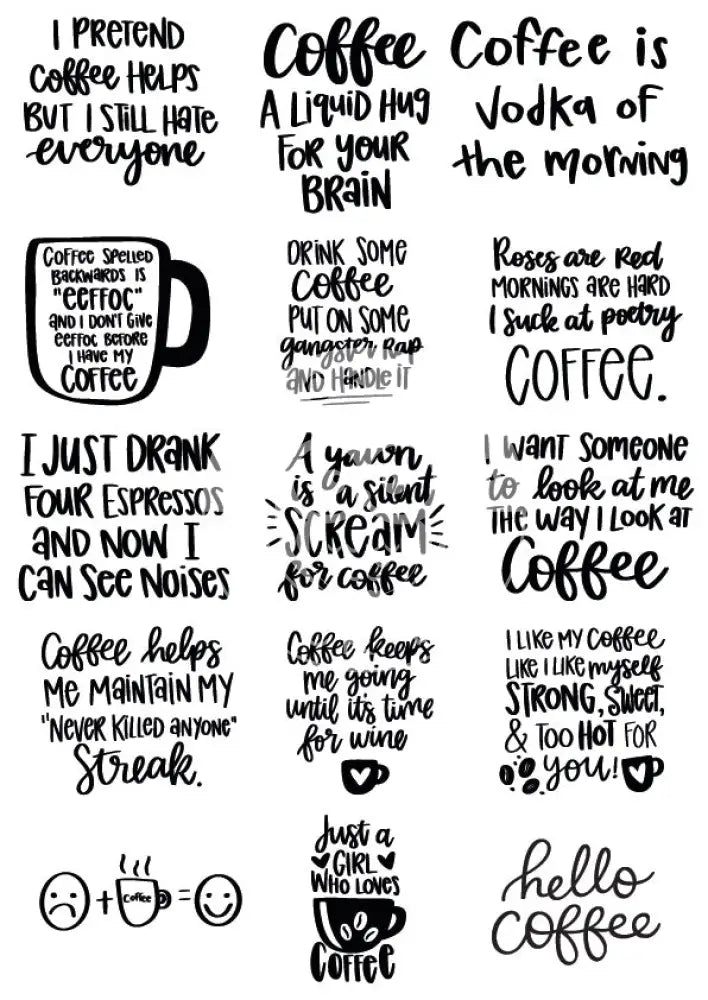 I PRETEND
coffee HELPS
BUT I STILL HATE
everyone
Coffee
A LiQuiD HUG
FOR YOUR
BRAIN
Coffee is
Vodka of
the morning
COFFEE SPELLED
BACKWARDS IS
"EEFFOC"
AND I DON'T GIVE
EEFFOC BEFORE
I HAVE MY
COFFEE
DRINK SOME
Coffee
PUT ON SOME
gangster RAP
AND HANDLE IT
Roses are Red
MORNINGS ARE HARD
I Suck at poetry
COFFEE.
I JUST DRANK
FOUR ESPRESSOS
AND NOW I
CAN SEE NOISES
A yawn
is a silent
SCREAM
for coffee
I WANT SOMEONE
to look at me
THE WAY I LOOK AT
Coffee
Coffee helps
ME MAINTAIN MY
"NEVER KILLED ANYONE"
Streak.
Coffee keeps
me going
until it's time
for wine
I LIKE MY COFFEE
LIKE I LIKE myself
STRONG, SWEET,
& TOO HOT FOR
you!
+ Coffee =
Just a
GIRL
WHO LOVES
COFFEE
hello
coffee